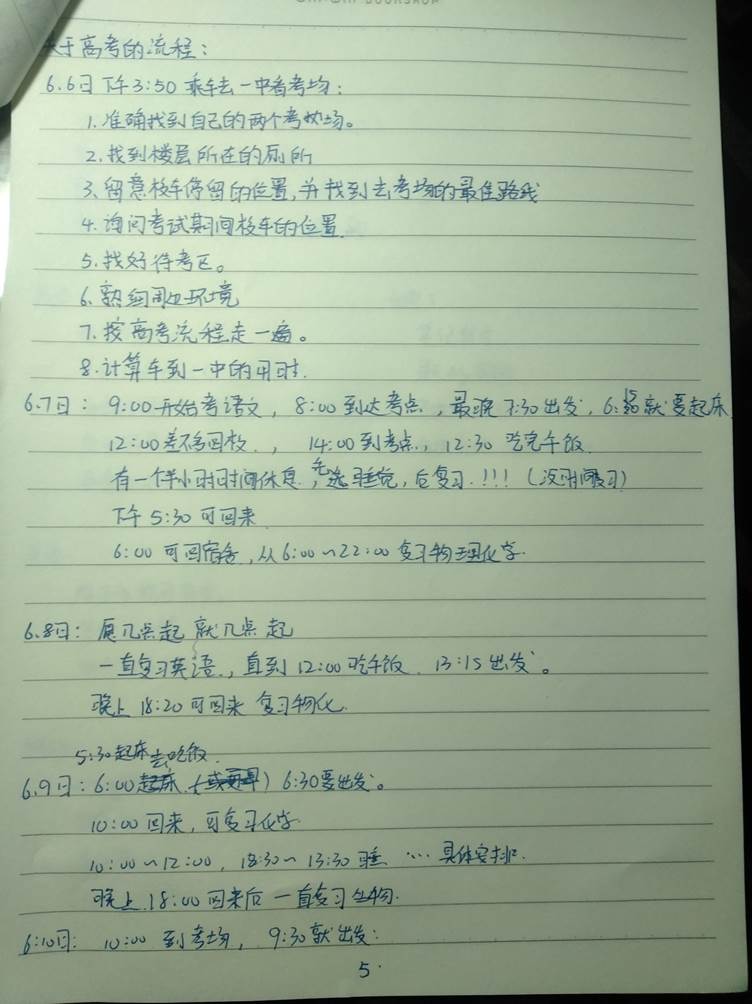 关于高考的流程:
6.6日下午3:50乘车去一中看考场:
1.准确找到自己的两个考场。
2.找到楼层所在的厕所
3.留意校车停留的位置,并找到去考场的最佳路线
4.询问考试期间校车的位置.
5.找好待考区。
6.熟细周边环境
7.按高考流程走一遍。
8.计算车到一中的用时.
6.7日: 9:00开始考语文, 8:00到达考点, 最晚7:30出发, 6:15就要起床
12:00差不多回校., 14:00到考点, 12:30吃完午饭.
有一个半小时时间休息,先选睡觉,后复习.!!!(没时间复习)
下午5:30可回来
6:00可回宿舍,从6:00~22:00复习物理化学.
6.8日: 愿几点起就几点起
一直复习英语.,直到12:00吃午饭. 13:15出发。
晚上18:20可回来 复习物化.
5:30起床去吃饭.
6.9日: 6:00 6:30要出发。
10:00回来,可复习化学.
10:00~12:00, 18:30~13:30睡 …具体安排.
晚上.18:00回来后一直复习生物.
6:10日: 10:00到考场, 9:30就出发:
5.